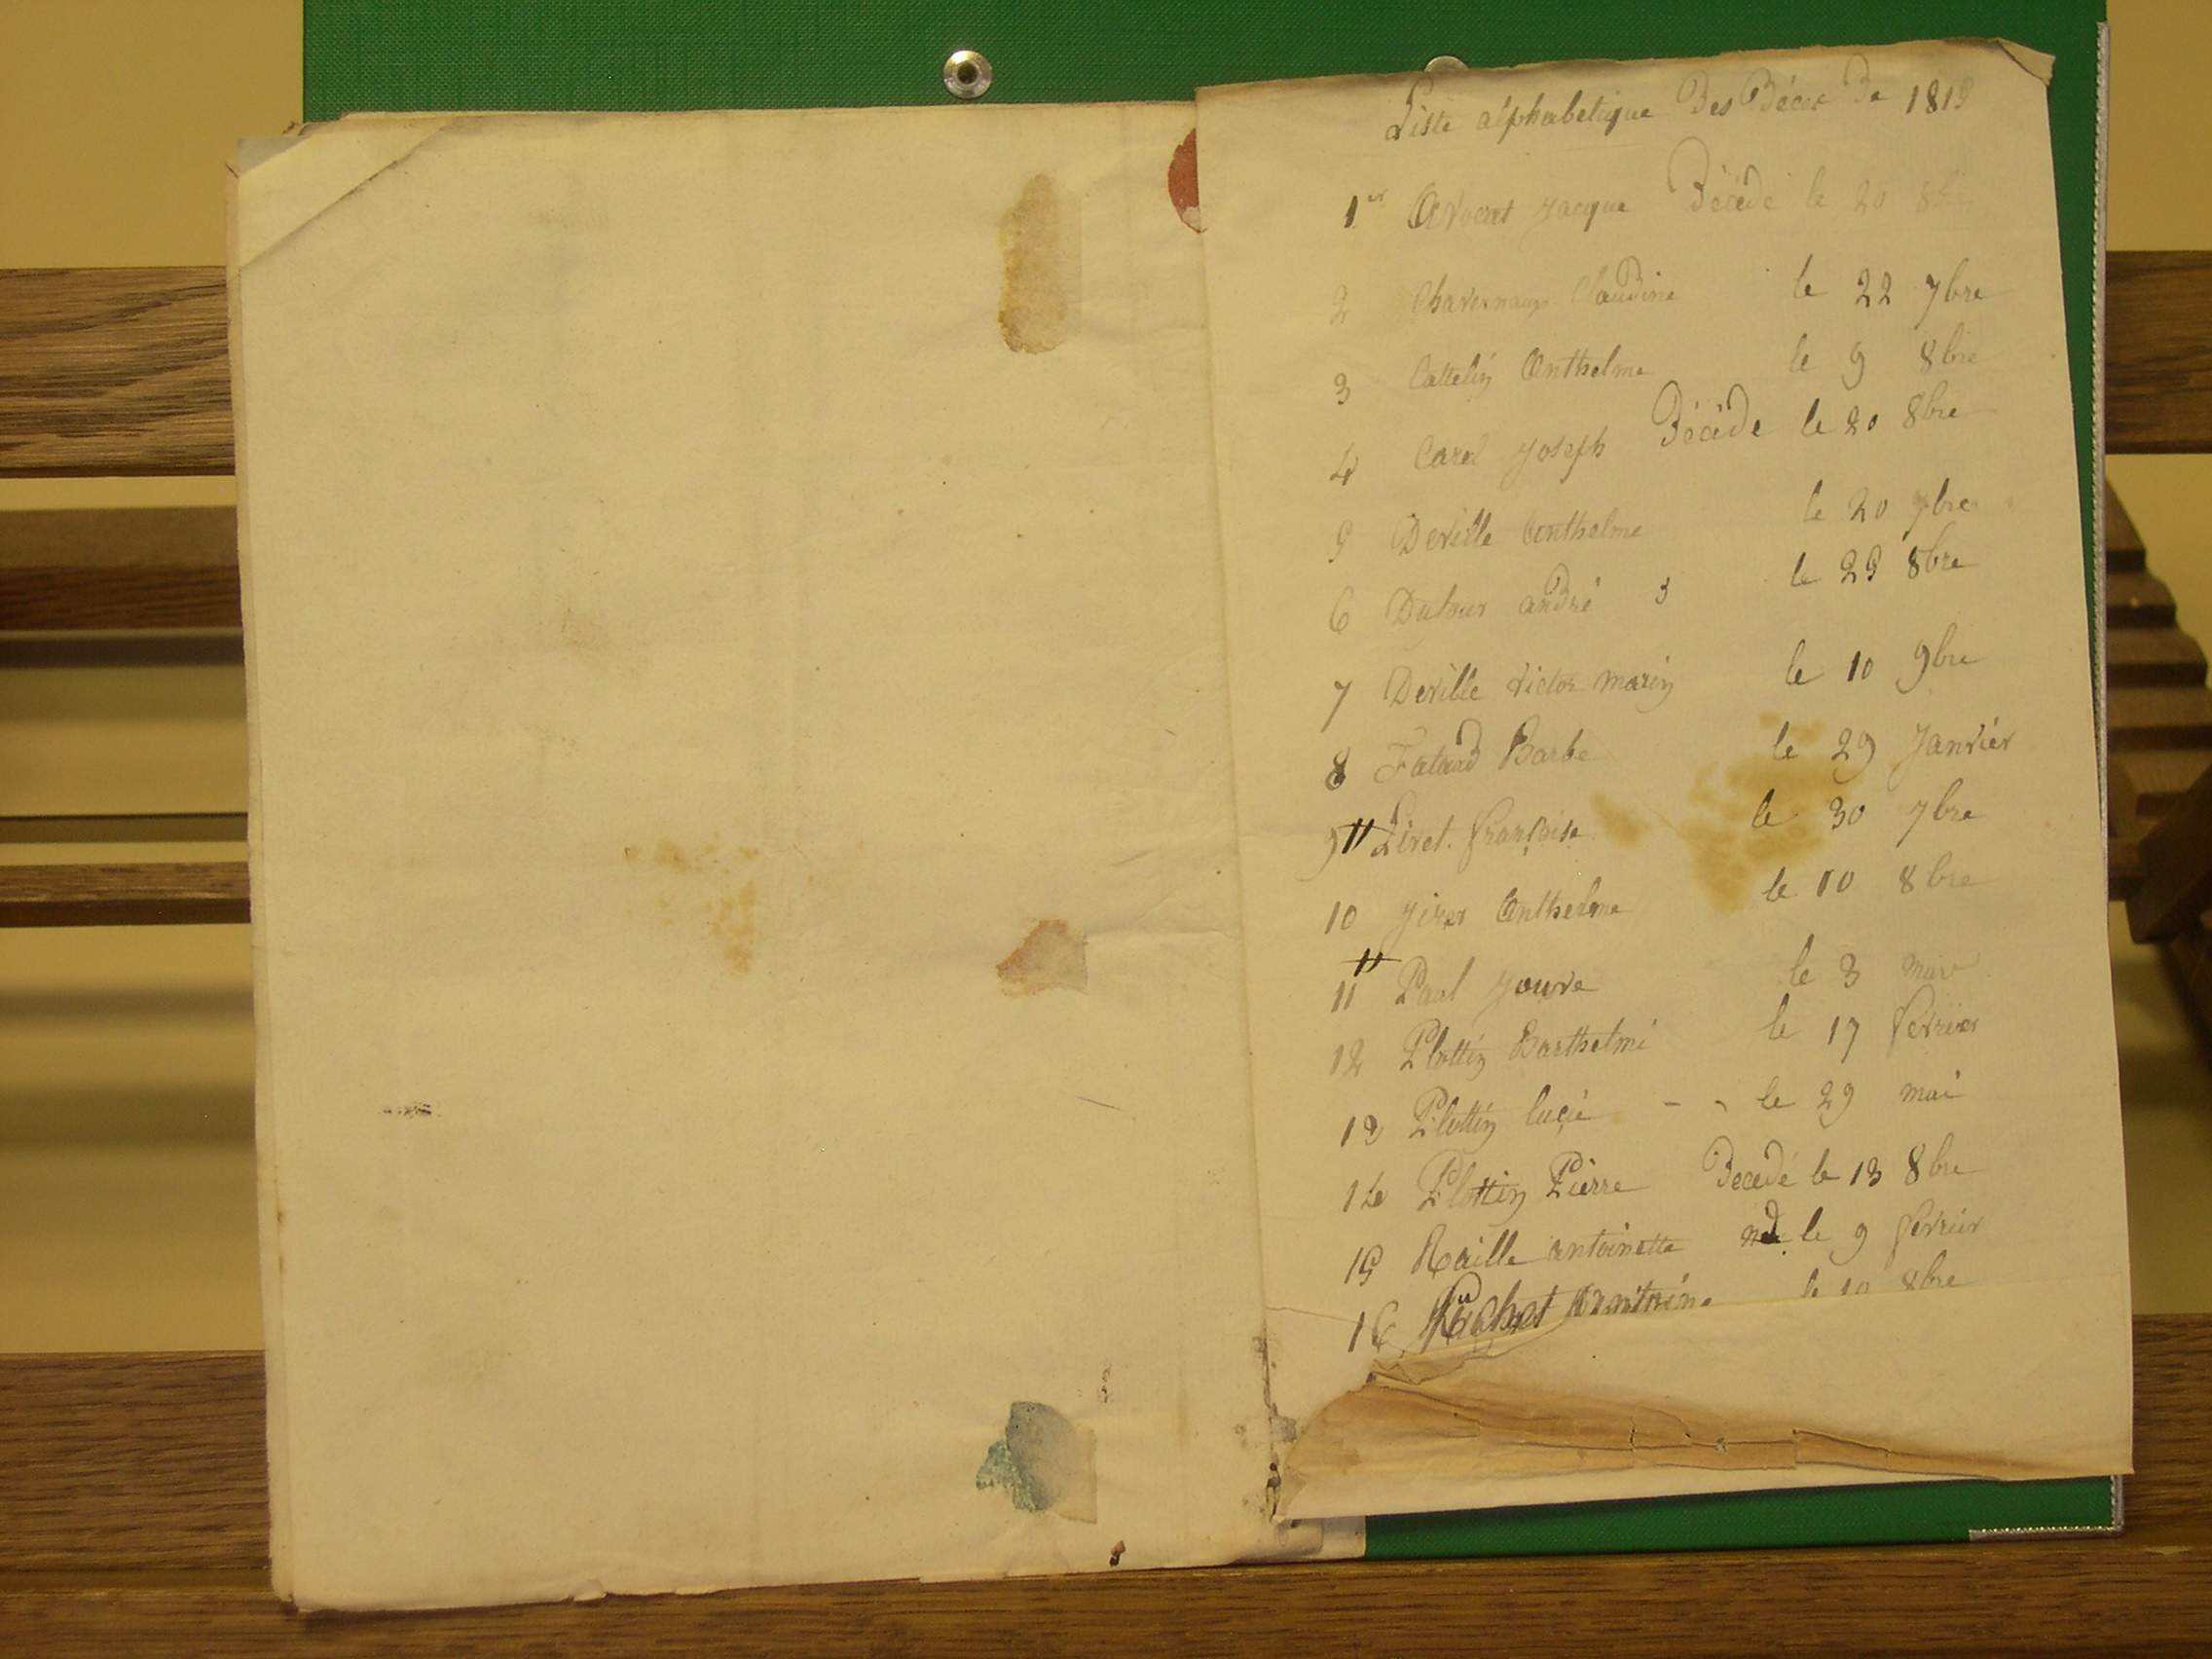 Liste alphabetique Des Décés De 1813
1er Avocat Jacque Décédé le 20 8bre
2 Chavernaux Claudine le 22 7bre
3 Cattelin Anthelme le 9 8bre
4 Carel Joseph Décédé le 20 8bre
5 Deville Anthelme le 20 7bre
6 Dufour andré le 23 8bre
7 Deville victor marin le 10 9bre
8 Falard Barbe le 29 Janvier
9 Livet françoise le 30 7bre
10 Anthelme le 10 8bre
11 Paul Jouve le 3 mars
12 Plottin Barthelmi le 17 fevrier
13 Plottin lucie - - le 29 mai
14 Plottin Pierre Decedé le 13 8bre
15 Raille antoinette le 9 fevrier
16 le 10 8bre